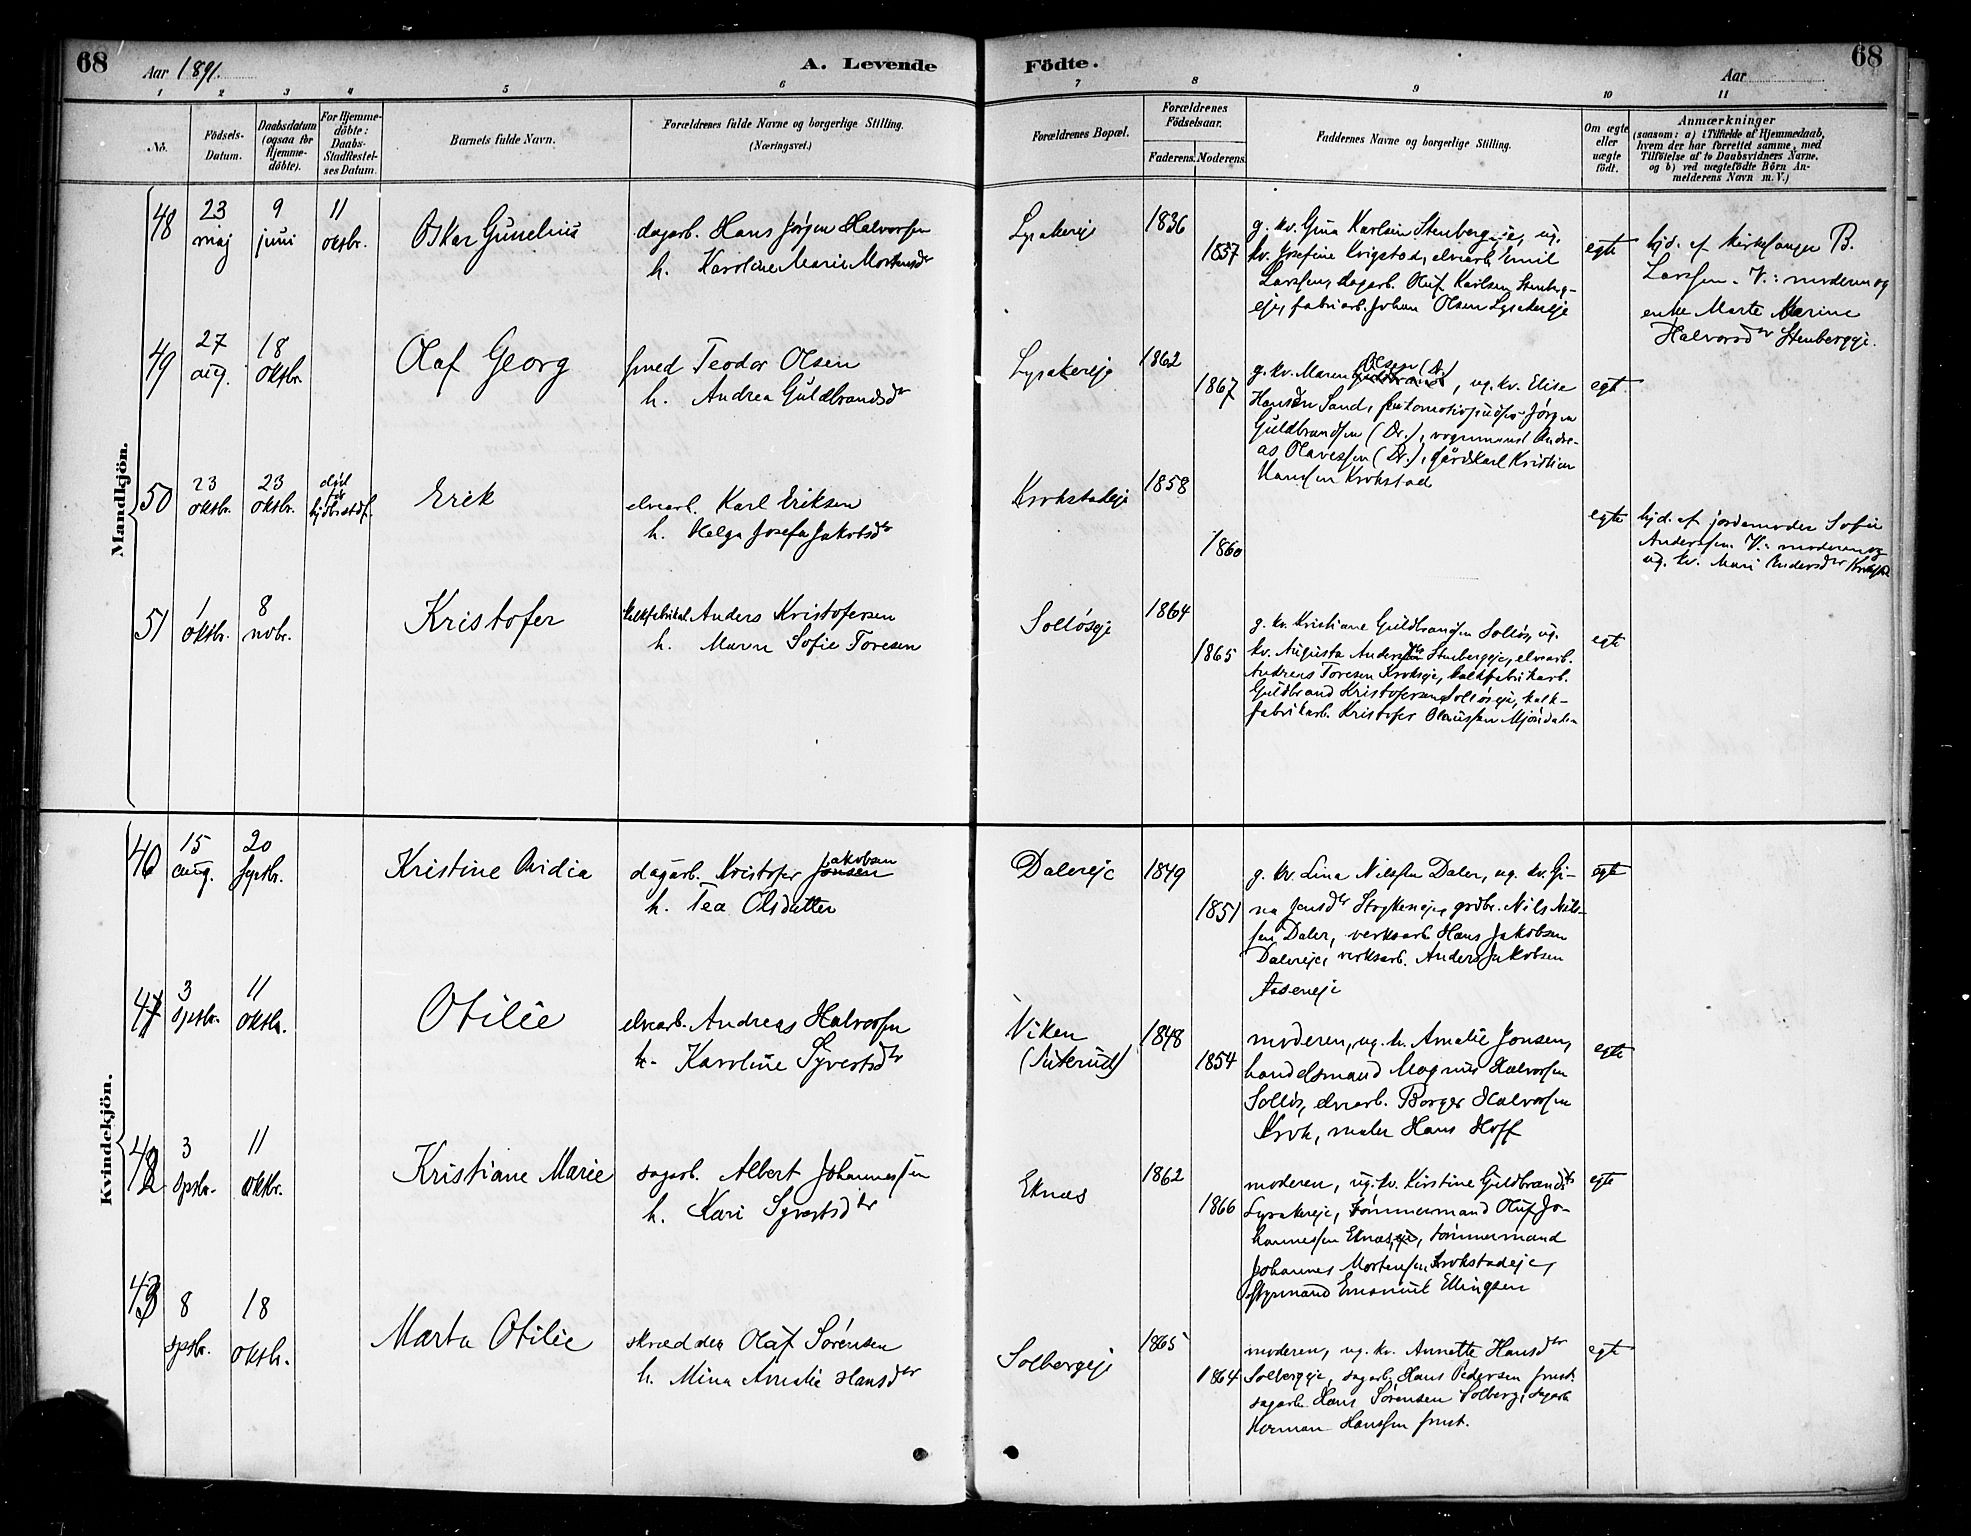 68
Aar 1891.
A. Levende
Födte.
Aar
68
1 2 3 4 5 6 7 8 9 10 11
No.
Födsels-
Datum.
Daabsdatum
(ogsaa for
Hjemme-
döbte).
For Hjemme-
döbte:
Daabs-
Stadfestel-
ses Datum.
Barnets fulde Navn.
Forældrenes fulde Navne og borgerlige Stilling.
(Næringsvei.)
Forældrenes Bopæl.
Forældrenes
Födselsaar.
Faderens. Moderens.
Faddernes Navne og borgerlige Stilling.
Om ægte
eller
uægte
födt.
Anmærkninger
(saasom: a) i Tilfælde af Hjemmedaab,
hvem der har forrettet samme, med
Tilföielse af to Daabsvidners Navne.
og b) ved uægtefödte Börn An-
melderens Navn m. V.)
Mandkjön.
48
23
maj
9
juni
11
oktbr.
Oskar Gunelius
dagarb. Hans Jørgen Halvorsen
h. Karoline Marie Mortensdtr
Lysakereje
1836
1857
g. kv. Gina Karlsen Stenbergeje, ug.
kv. Josefine Krigstad, elvearb. Emil
Larssen, dagarb. Oluf Karlsen Stenberg-
eje, fabrikarb. Johan Olsen Lysakereje
egte
hjd. af kirkesanger B.
Larssen. V.: moderen og
enke Marte Marine
Halvorsdtr Stenbergeje.
49
27
aug.
18
oktbr.
Olaf Georg
smed Teodor Olsen
h. Andrea Guldbrandsdtr
Lysakereje
1862
1867
g. kv. Maren Olsen (Dr.)
, ug. kv. Elise
Hansen Sand, Jørgen
Guldbrandsen (Dr.), vognmand Andre-
as Olavessen (Dr.), gårdskarl Kristian
Hansen Krokstad
egt.
50
23
oktbr.
23
oktbr.
død
før
Erik
elvearb. Karl Eriksen
h. Helga Josefa Jakobsdtr
Krokstadeje
1858
1860
egte
hjd. af jordemoder Sofie
Anderssen. V.: moderen og
ug. kv. Mari Andersdtr
51
1
oktbr.
8
novbr.
Kristofer
kalkfabrikarb. Anders Kristofersen
h. Maren Sofie Toresen
Solløseje
1864
1865
g. kv. Kristiane Guldbrandsen Solløs, ug.
kv. Augusta Stenbergeje, elvearb.
Andreas Toresen Krokseje, kalkfabrikarb.
Guldbrand Kristofersen Solløseje, kalk-
fabrikarb. Kristofer Olaussen Mjøndalen
egte
Kvindekjön.
40
15
aug.
20
septbr.
Kristine Ovidia
dagarb. Kristofer Jonsen Jakobsen
h. Tea Olsdatter
Dalereje
1849
1851
g. kv. Lina Nilssen Daler, ug. kv. Gi-
na Jensdtr Stykkeneje, grdbr. Nils Nils-
sen Daler, verksarb. Hans Jakobsen
Dalereje, verksarb. Anders Jakobsen
Aseneje
egte
41
3
septbr.
11
oktbr.
Otilie
elvearb. Andreas Halvorsen
h. Karoline Syvertsdtr
Viken
1848
1854
moderen, ug. kv. Amalie Jonsen,
handelsmand Magnus Halvorsen
Solløs, elvearb. Borger Halvorsen
Krok, maler Hans Hoff
egte
42
3
septbr.
11
oktbr.
Kristiane Marie
sagarb. Albert Johannessen
h. Kari Syvertsdtr
Eknæs
1862
1866
moderen, ug. kv. Kirstine Guldbrandsdtr
Lysakereje, tømmermand Oluf Jo-
hannessen Eknæs, tømmermand
Johannes Mortensen Krokstadeje,
styrmand Emanuel Ellingsen
egte
43
8
septbr.
18
oktbr.
Marta Otilie
skrædder Olaf Sørensen
h. Mina Amalie Hansdtr
Solbergeje
1865
1864
moderen, ug. kv. Annette Hansdtr
Solbergeje, sagarb. Hans Pedersen smst.
sagarb. Hans Sørensen Solberg, sagarb.
Herman Hanssen smst.
egte